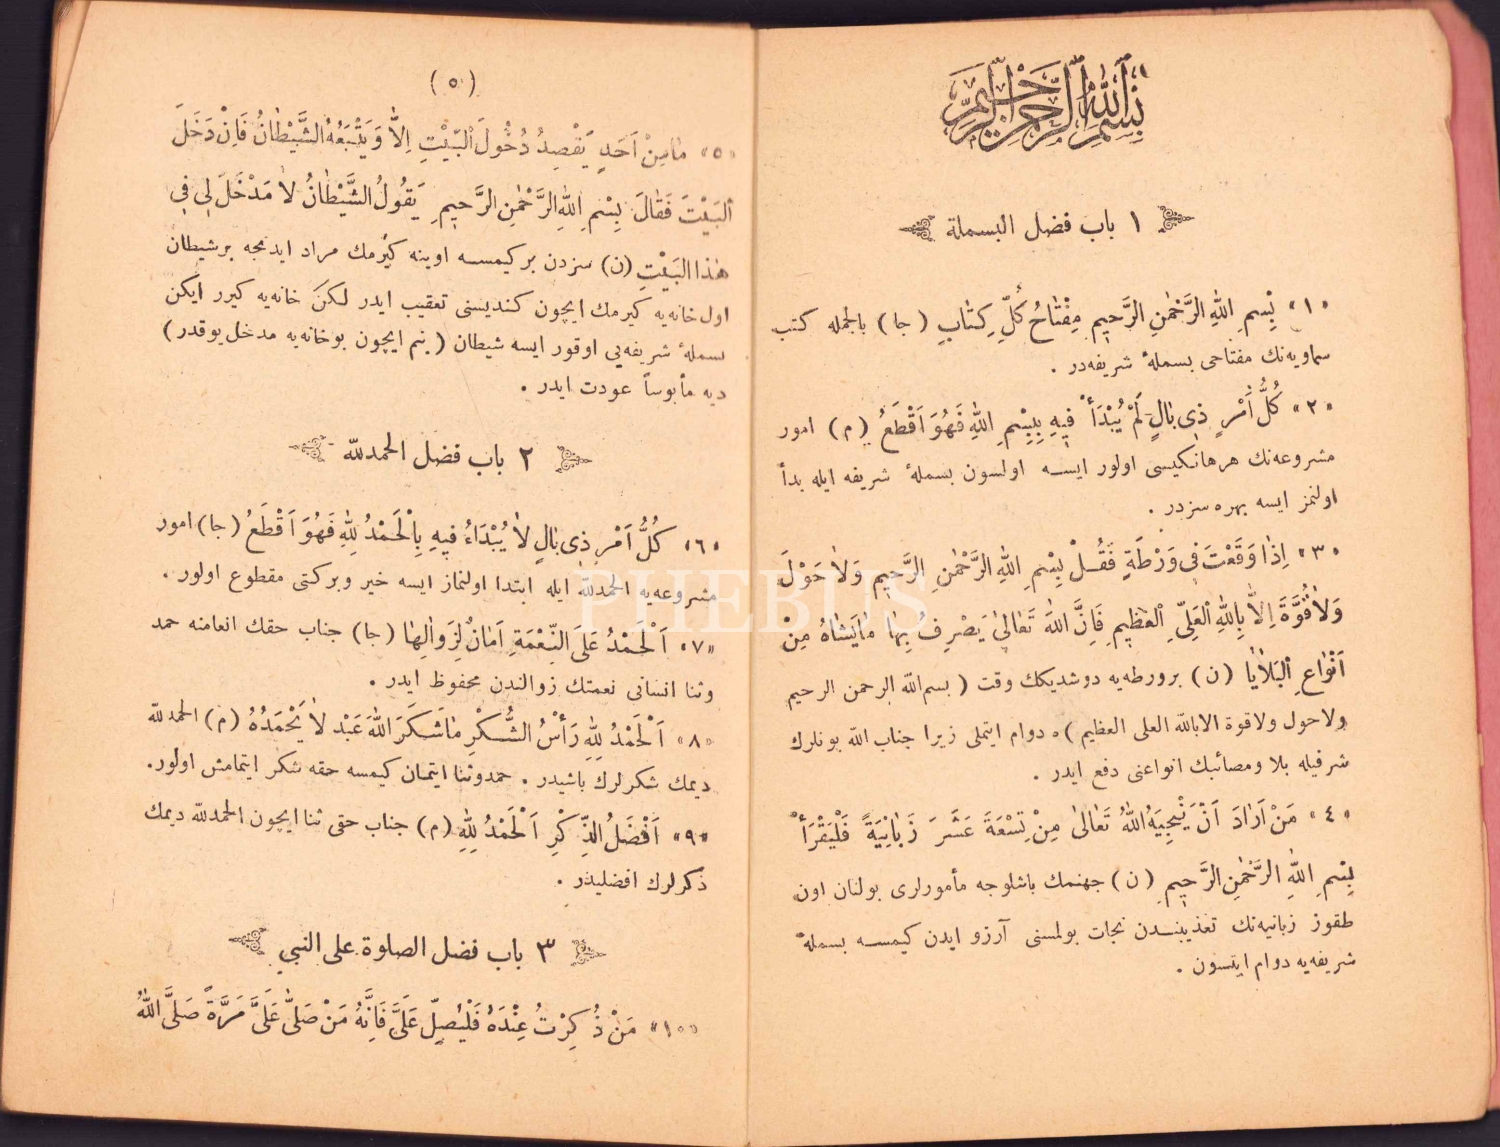 بِسْمِ اللهِ الرَّحْمٰنِ الرَّحِيمِ
١ باب فضل البسملة
«١» بِسْمِ اللهِ الرَّحْمٰنِ الرَّحِيمِ مِفْتَاحُ كُلِّ كِتَابٍ (جا) بالجمله كتب
سماویه‌نك مفتاحی بسملهٔ شریفه‌در .
«٢» كُلُّ اَمْرٍ ذِى بَالٍ لَمْ يُبْدَأْ فِيهِ بِبِسْمِ اللهِ فَهُوَ اَقْطَعُ (م) امور
مشروعه‌نك هرهانكیسی اولور ایسه اولسون بسملهٔ شریفه ایله بدأ
اولنمز ایسه بهره سزدر .
«٣» اِذَا وَقَعْتَ فِى وَرْطَةٍ فَقُلْ بِسْمِ اللهِ الرَّحْمٰنِ الرَّحِيمِ وَلاَ حَوْلَ
وَلاَ قُوَّةَ اِلاَّ بِاللهِ الْعَلِىِّ الْعَظِيمِ فَاِنَّ اللهَ تَعَالٰى يَصْرِفُ بِهَا مَا يَشَاءُ مِنْ
اَنْوَاعِ الْبَلاَيَا (ن) برورطه‌یه دوشدیكك وقت ( بسم‌الله الرحمن الرحیم
ولاحول ولاقوة الابالله العلی العظیم )ه دوام ایتملی زیرا جناب الله بونلرك
شرفیله بلا ومصائبك انواعنی دفع ایدر .
«٤» مَنْ اَرَادَ اَنْ يُنْجِيَهُ اللهُ تَعَالٰى مِنْ تِسْعَةَ عَشَرَ زَبَانِيَةً فَلْيَقْرَأْ
بِسْمِ اللهِ الرَّحْمٰنِ الرَّحِيمِ (ن) جهنمك باشلوجه مأمورلری بولنان اون
طقوز زبانیه‌نك تعذیبندن نجات بولمسنی آرزو ایدن كیمسه بسملهٔ
شریفه‌یه دوام ایتسون .
(٥)
«٥» مَا مِنْ اَحَدٍ يَقْصِدُ دُخُولَ الْبَيْتِ اِلاَّ وَيَتْبَعُهُ الشَّيْطَانُ فَاِنْ دَخَلَ
الْبَيْتَ فَقَالَ بِسْمِ اللهِ الرَّحْمٰنِ الرَّحِيمِ يَقُولُ الشَّيْطَانُ لاَ مَدْخَلَ لِى فِى
هٰذَا الْبَيْتِ (ن) سزدن بر كیمسه اوینه كیرمك مراد ایدنجه برشیطان
اول خانه‌یه كیرمك ایچون كندیسنی تعقیب ایدر لكن خانه‌یه كیرر ایكن
بسملهٔ شریفه‌یی اوقور ایسه شیطان ( بنم ایچون بوخانه‌یه مدخل یوقدر )
دیه مأیوساً عودت ایدر .
٢ باب فضل الحمدلله
«٦» كُلُّ اَمْرٍ ذِى بَالٍ لاَ يُبْدَاءُ فِيهِ بِالْحَمْدُ لِلّٰهِ فَهُوَ اَقْطَعُ (جا) امور
مشروعه‌یه الحمدلله ایله ابتدا اولنماز ایسه خیر وبركتی مقطوع اولور .
«٧» اَلْحَمْدُ عَلَى النِّعْمَةِ اَمَانٌ لِزَوَالِهَا (جا) جناب حقك انعامنه حمد
وثنا انسانی نعمتك زوالندن محفوظ ایدر .
«٨» اَلْحَمْدُ لِلّٰهِ رَأْسُ الشُّكْرِ مَا شَكَرَ اللهَ عَبْد لاَ يَحْمَدُهُ (م) الحمدلله
دیمك شكرلرك باشیدر . حمدوثنا ایتمیان كیمسه حقه شكر ایتمامش اولور.
«٩» اَفْضَلُ الذِّكْرِ اَلْحَمْدُ لِلّٰهِ (م) جناب حقی ثنا ایچون الحمدلله دیمك
ذكرلرك افضلیدر .
٣ باب فضل الصلوة على النبي
«١٠» مَنْ ذُكِرْتُ عِنْدَهُ فَلْيُصَلِّ عَلَىَّ فَاِنَّهُ مَنْ صَلَّى عَلَىَّ مَرَّةً صَلَّى اللهُ
PHEBUS